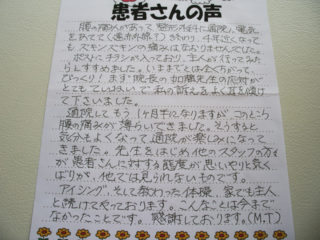 患者さんの声
腰の痛みがあって整形外科に通院し、電気
をあてて(遠赤外線)もらったり、4年近くなって
もズキンズキンの痛みはなおりませんでした。
ポストにチラシが入っており、主人が行ってみた
らとすすめました。いままでとは全くちがって、
びっくり!まず院長の加藤先生の応対が
とてもていねいで私の訴えをよく耳を傾け
て下さいました。
通院してもう1ヶ月半になりますが、このところ
腰の痛みが薄らいできました。そうすると
気分もよくなって通院が楽しみになって
きました。先生をはじめ他のスタッフの方も
が患者さんに対する態度が思いやり深く、
ばりか、他では見られないものです。
アイシング、そして教わった体操、家でも主人
と続けてやっております。こんなことは今まで
なかったことです。感謝しております。(M.T)